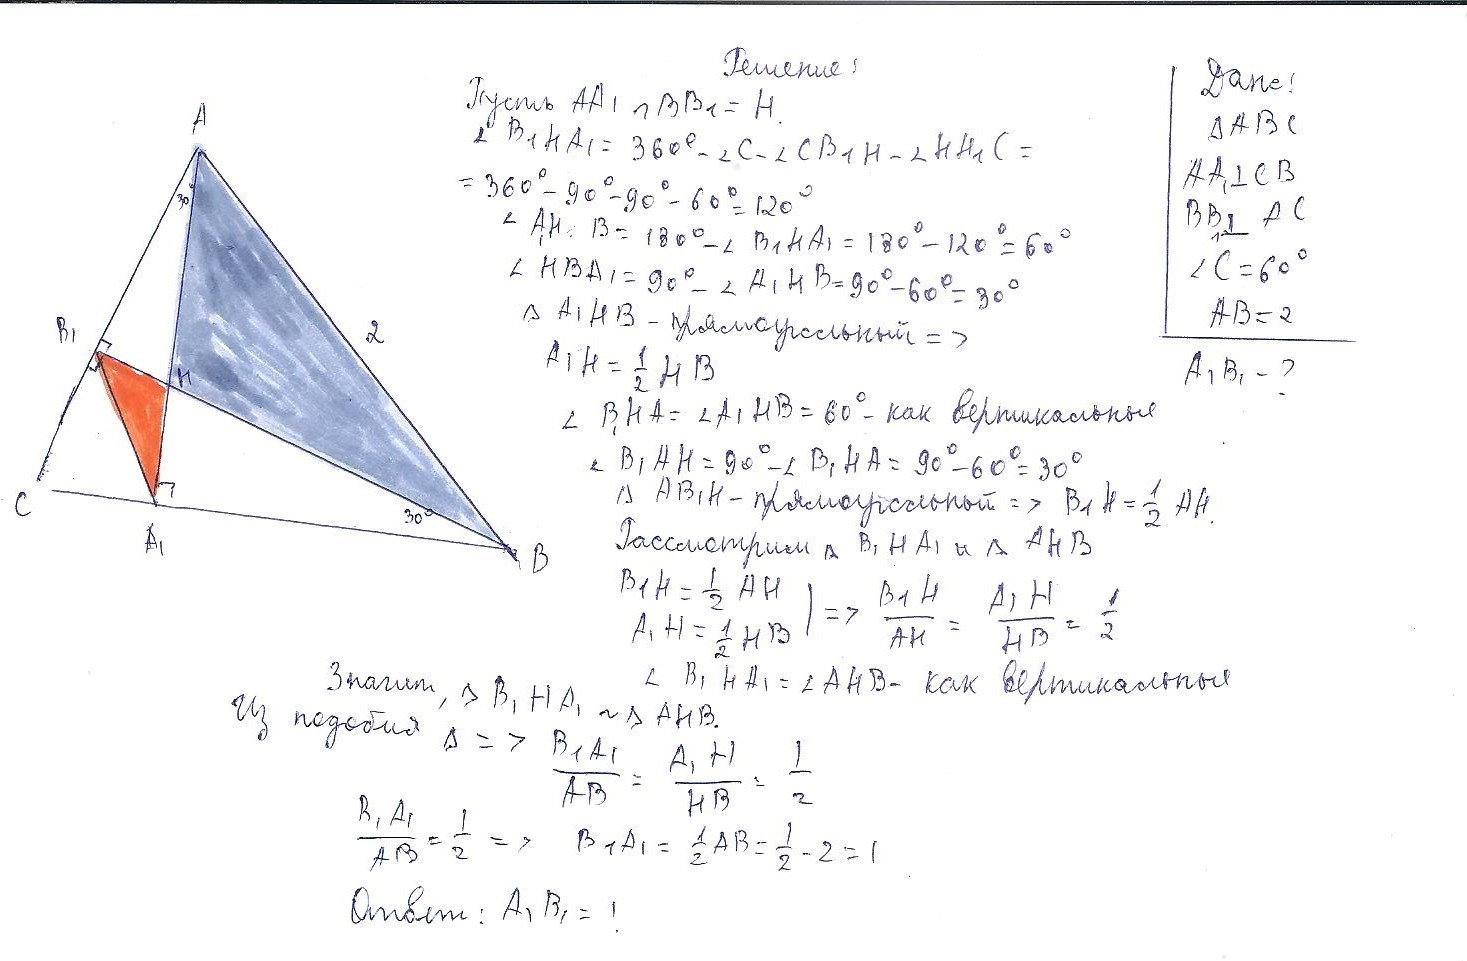 Решение:
Пусть AA₁ ∩ BB₁ = H.
∠ B₁HA₁ = 360° - ∠C - ∠CB₁H - ∠HA₁C =
= 360° - 90° - 90° - 60° = 120°
∠ A₁H B = 180° - ∠ B₁HA₁ = 180° - 120° = 60°
∠ HBA₁ = 90° - ∠ A₁HB = 90° - 60° = 30°
Δ A₁HB - прямоугольный =>
A₁H = 1/2 HB
∠ B₁HA = ∠A₁HB = 60° - как вертикальные
∠ B₁AH = 90° - ∠ B₁HA = 90° - 60° = 30°
Δ AB₁H - прямоугольный => B₁H = 1/2 AH.
Рассмотрим Δ B₁HA₁ и Δ AHB
B₁H = 1/2 AH
A₁H = 1/2 HB | => B₁H/AH = A₁H/HB = 1/2
∠ B₁HA₁ = ∠AHB - как вертикальные
Значит, Δ B₁HA₁ ~ Δ AHB.
Из подобия Δ => B₁A₁/AB = A₁H/HB = 1/2
B₁A₁/AB = 1/2 => B₁A₁ = 1/2 AB = 1/2 · 2 = 1
Ответ: A₁B₁ = 1
Дано:
ΔABC
AA₁⊥CB
BB₁⊥ AC
∠C = 60°
AB = 2
A₁B₁ - ?
A
30°
B₁
H
2
C
A₁
30°
B